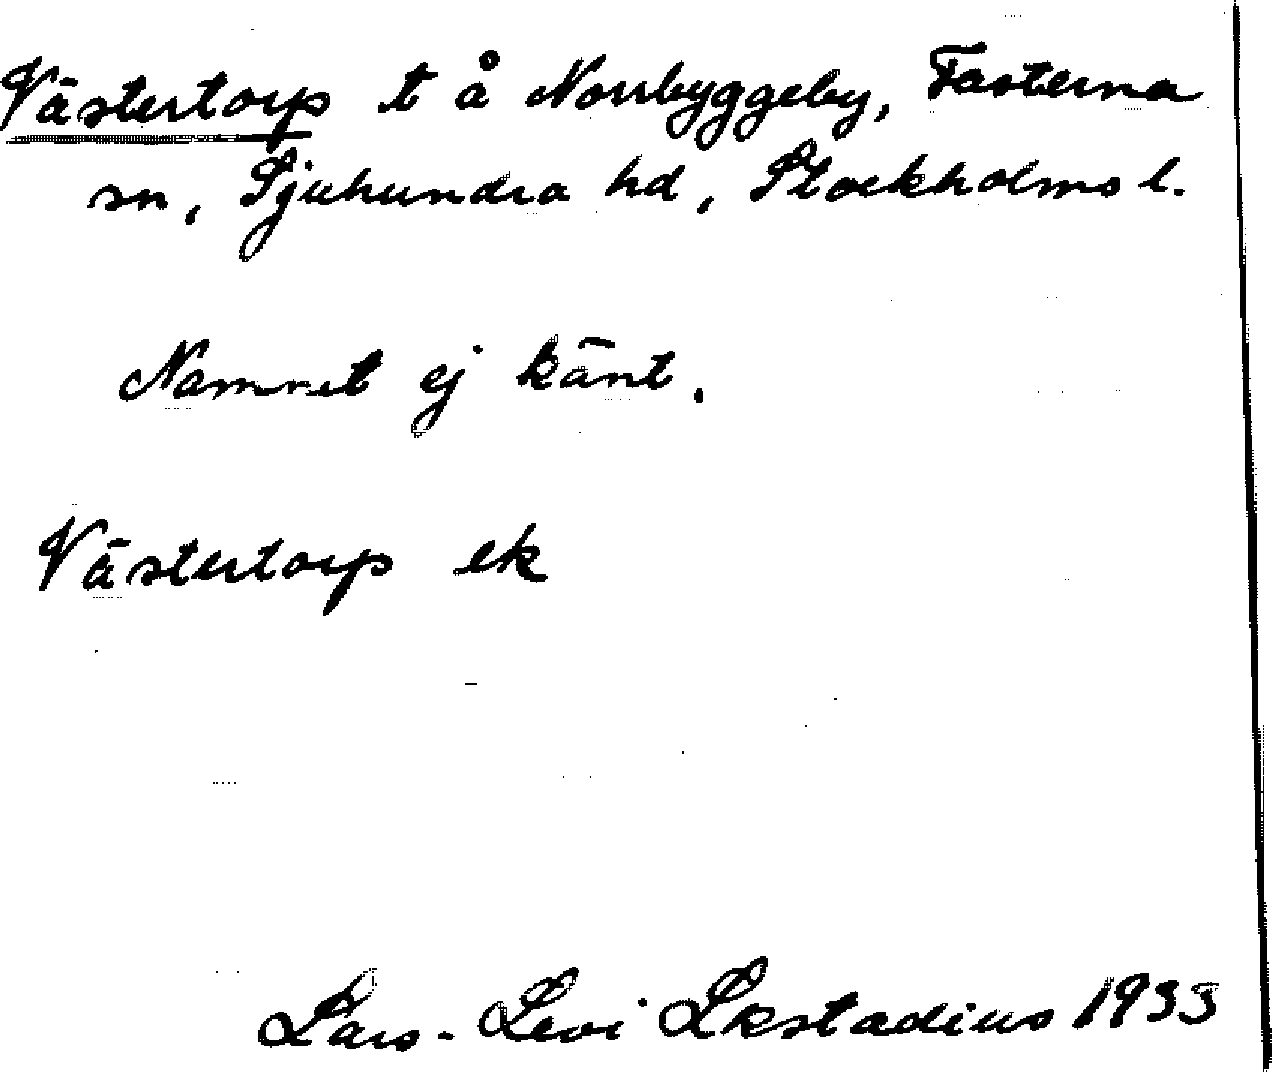 Västertorp t å Norrbyggeby, Fasterna
sn, Sjuhundra hd, Stockholms l.
Namnet ej känt.
Västertorp ek
Lars-Levi Lkstadius 1933